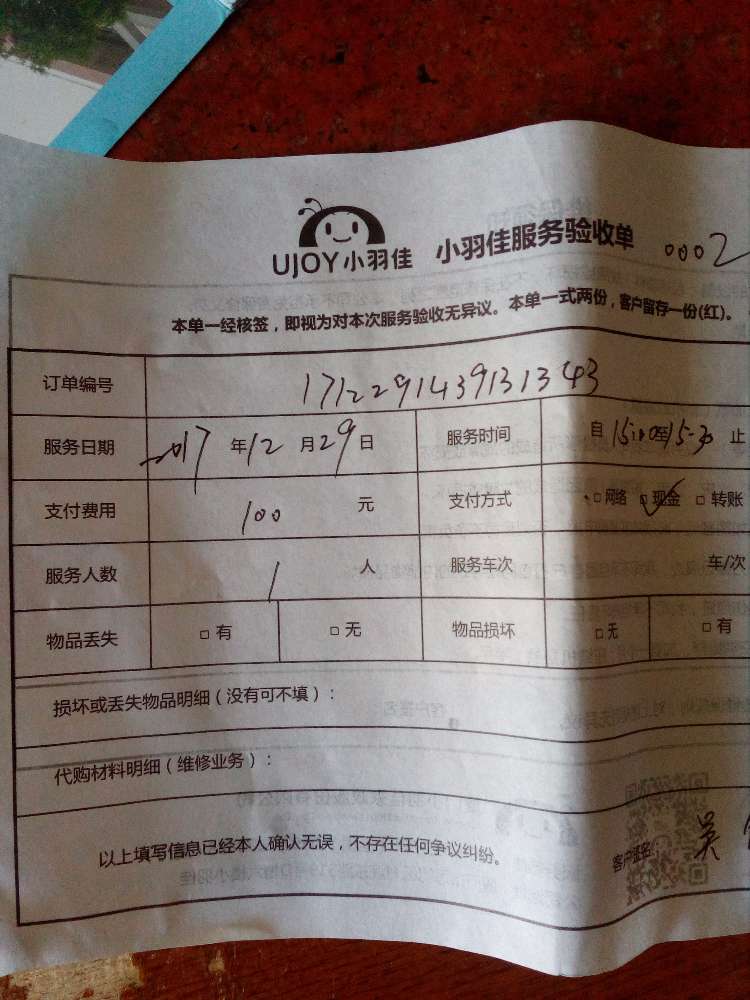 UJOY小羽佳 小羽佳服务验收单 0002
本单一经核签，即视为对本次服务验收无异议。本单一式两份，客户留存一份(红)。
订单编号 1712291439131343
服务日期 2017年12月29日 服务时间 自15:00至15:30止
支付费用 100 元 支付方式 □网络 □现金 □转账
服务人数 1 人 服务车次 车/次
物品丢失 □有 □无 物品损坏 □无 □有
损坏或丢失物品明细（没有可不填）：
代购材料明细（维修业务）：
以上填写信息已经本人确认无误，不存在任何争议纠纷。 客户签名 吴